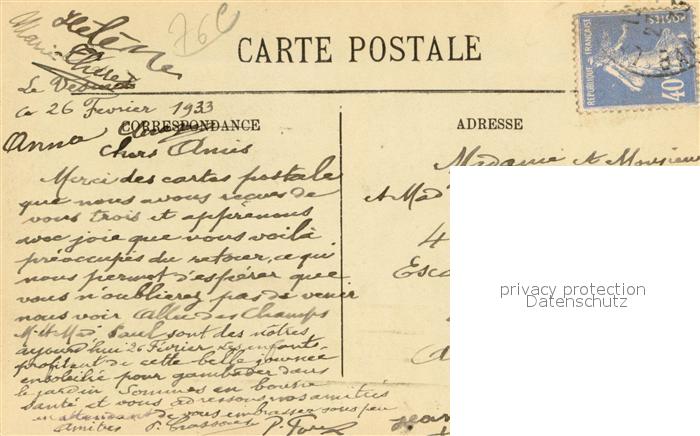 Hélène
76C
Marie
CARTE POSTALE
RÉPUBLIQUE FRANÇAISE
POSTES
40
Le
Ce 26 Fevrier 1933
CORRESPONDANCE
ADRESSE
Anna
Chers Amis
Madame et Monsieur
Merci des cartes postale
que nous avons reçues de
et Mad
vous trois et apprenons
avec joie que vous voilà
4
préoccupés du retour, ce qui
nous permet d'espérer que
Esca
vous n'oublierez pas de venir
nous voir Allée des Champs
Mr et Mad Paul sont des nôtres
aujourd'hui 26 Février Les enfants
profitent de cette belle journée
ensoleillé pour gambader dans
le jardin Sommes en bonne
santé et vous adressons nos amitiés
en attendant de vous embrasser sous peu
Amities P.
privacy protection
Datenschutz